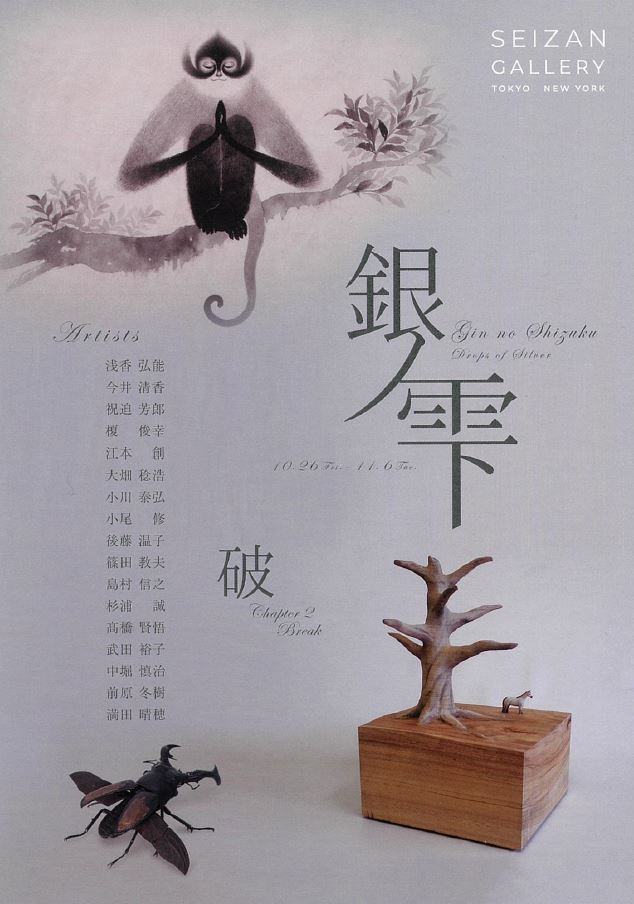 SEIZAN
GALLERY
TOKYO NEW YORK
銀ノ雫
Gin no Shizuku
Drops of Silver
10.26 Fri. - 11.6 Tue.
破
Chapter 2
Break
Artists
浅香 弘能
今井 清香
祝迫 芳郎
榎 俊幸
江本 創
大畑 稔浩
小川 泰弘
小尾 修
後藤 温子
篠田 教夫
島村 信之
杉浦 誠
髙橋 賢悟
武田 裕子
中堀 慎治
前原 冬樹
満田 晴穂